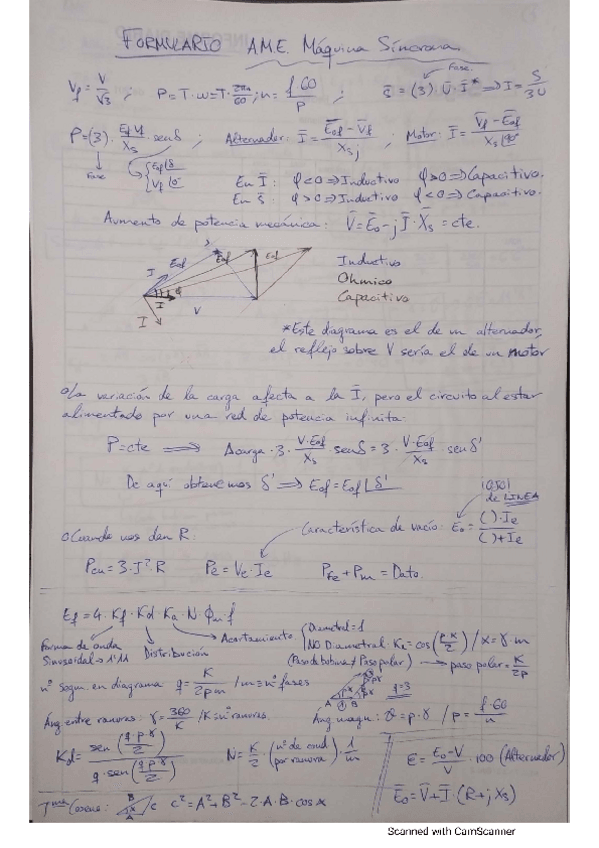 FORMULARIO A.M.E. Máquina Síncrona
Vf = V/√3 ; P = T·ω = T·2πn/60 ; n = f·60/P ; S̄ = (3)·Ū·Ī* ⇒ I = S/3U
Fase.
P = (3)·Eof·Vf/Xs · senδ ; Alternador: Ī = (Ēof − V̄f)/(Xs j) ; Motor: Ī = (V̄f − Ēof)/(Xs|90°)
Fase {Eof|δ
Vf|0°
En Ī: φ<0 ⇒ Inductivo φ>0 ⇒ Capacitivo.
En S̄: φ>0 ⇒ Inductivo φ<0 ⇒ Capacitivo.
Aumento de potencia mecánica: V̄ = Ēo − j Ī·Xs = cte.
I Eof Eof Eof
I
I V
Inductivo
Ohmico
Capacitivo
*Este diagrama es el de un alternador,
el reflejo sobre V sería el de un motor
o La variación de la carga afecta a la Ī, pero el circuito al estar
alimentado por una red de potencia infinita:
P = cte ⟹ Δcarga·3·V·Eof/Xs · senδ = 3·V·Eof/Xs · senδ'
De aquí obtenemos δ' ⟹ Eof = Eof|δ'
¡OJO!
de LINEA
o Cuando nos den R: Característica de vacío: Eo = ( )·Ie/( )+Ie
Pcu = 3·I²·R Pe = Ve·Ie PFe + Pm = Dato.
Ef = 4·Kf·Kd·Ka·N·Φm·f
Forma de onda
Sinusoidal → 1'11
Distribución
Acortamiento {Diametral = 1
NO Diametral Ka = cos(p·α/2) / α = γ·m
(Paso de bobina ≠ Paso polar) → paso polar = K/2p
nº segm. en diagrama q = K/2pm / m ≡ nº fases
A B q=3
Áng. entre ranuras: γ = 360/K / K ≡ nº ranuras. Áng magn: ϑ = p·γ / p = f·60/n
Kd = sen(q·p·γ/2)/(q·sen(p·γ/2)) N = K/2 (nº de cond por ranura) 1/m
ε = (Eo − V)/V · 100 (Alternador)
Ēo = V̄ + Ī·(R + j Xs)
Tma Coseno: B A C c² = A² + B² − 2·A·B·cos α
Scanned with CamScanner